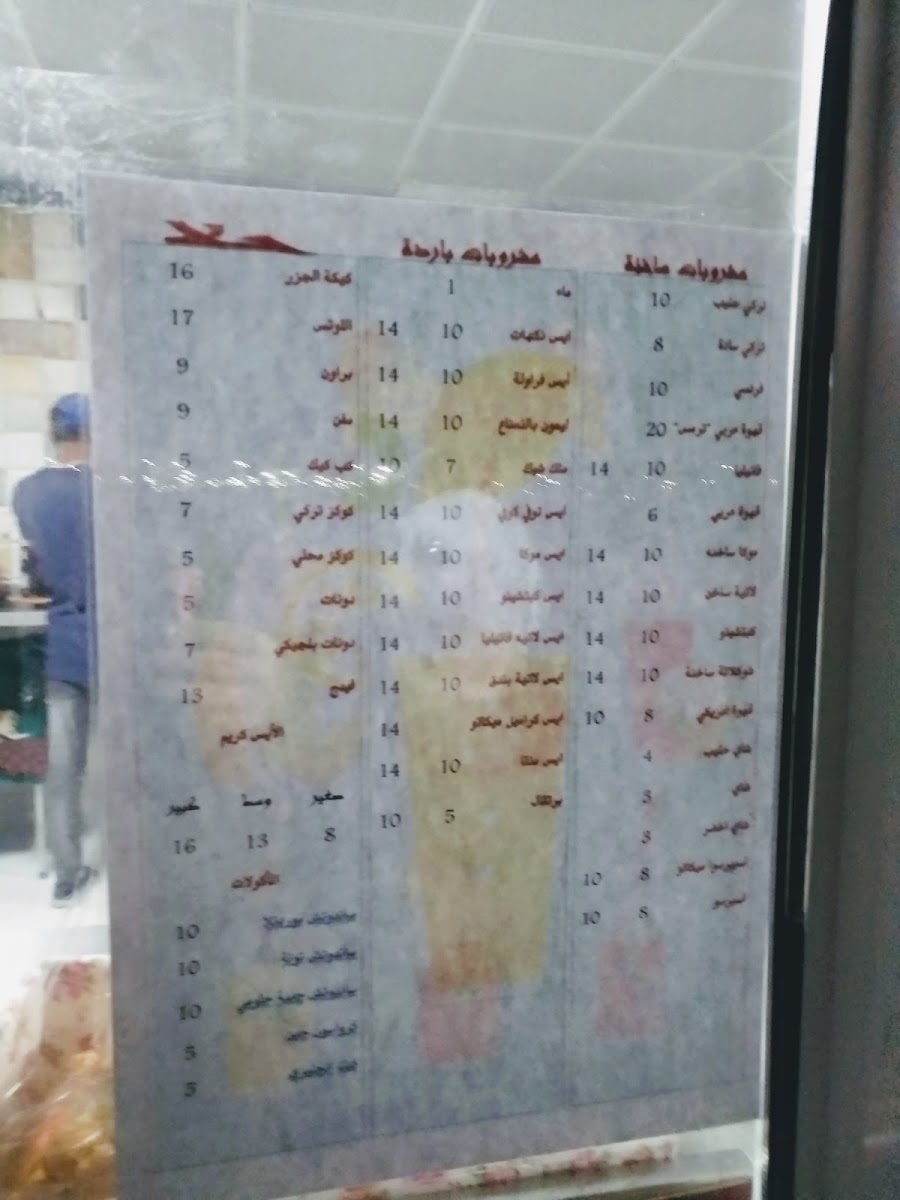 مشروبات ساخنة
تركي حليب 10
تركي سادة 8
فرنسي 10
قهوة عربي "ترمس" 20
فانيليا 10 14
قهوة عربي 6
موكا ساخنه 10 14
لاتية ساخن 10 14
كبتشينو 10 14
شوكلاتة ساخنة 10 14
قهوة امريكي 8 10
شاي حليب 4
شاي 3
شاي اخضر 3
اسبريسوا ميكاتو 8 10
اسبرسو 8 10
مشروبات باردة
ماء 1
ايس نكهات 10 14
ايس فراولة 10 14
ليمون بالنعناع 10 14
ملك شيك 7 10
ايس توفي كارمل 10 14
ايس موكا 10 14
ايس كبتشينو 10 14
ايس لاتيه فانيليا 10 14
ايس لاتية بندق 10 14
ايس كراميل ميكاتو 14
ايس 10 14
برتقال 5 10
حلا
كيكة الجزر 16
اللوتس 17
براون 9
مفن 9
كب كيك 5
كوكز تركي 7
كوكز محلي 5
دونات 5
دونات بلجيكي 7
فيدج 13
الأيس كريم
صغير وسط كبير
8 13 16
المأكولات
ساندوتش 10
ساندوتش تونة 10
ساندوتش جبنة حلومي 10
كرواسون جبن 5
5